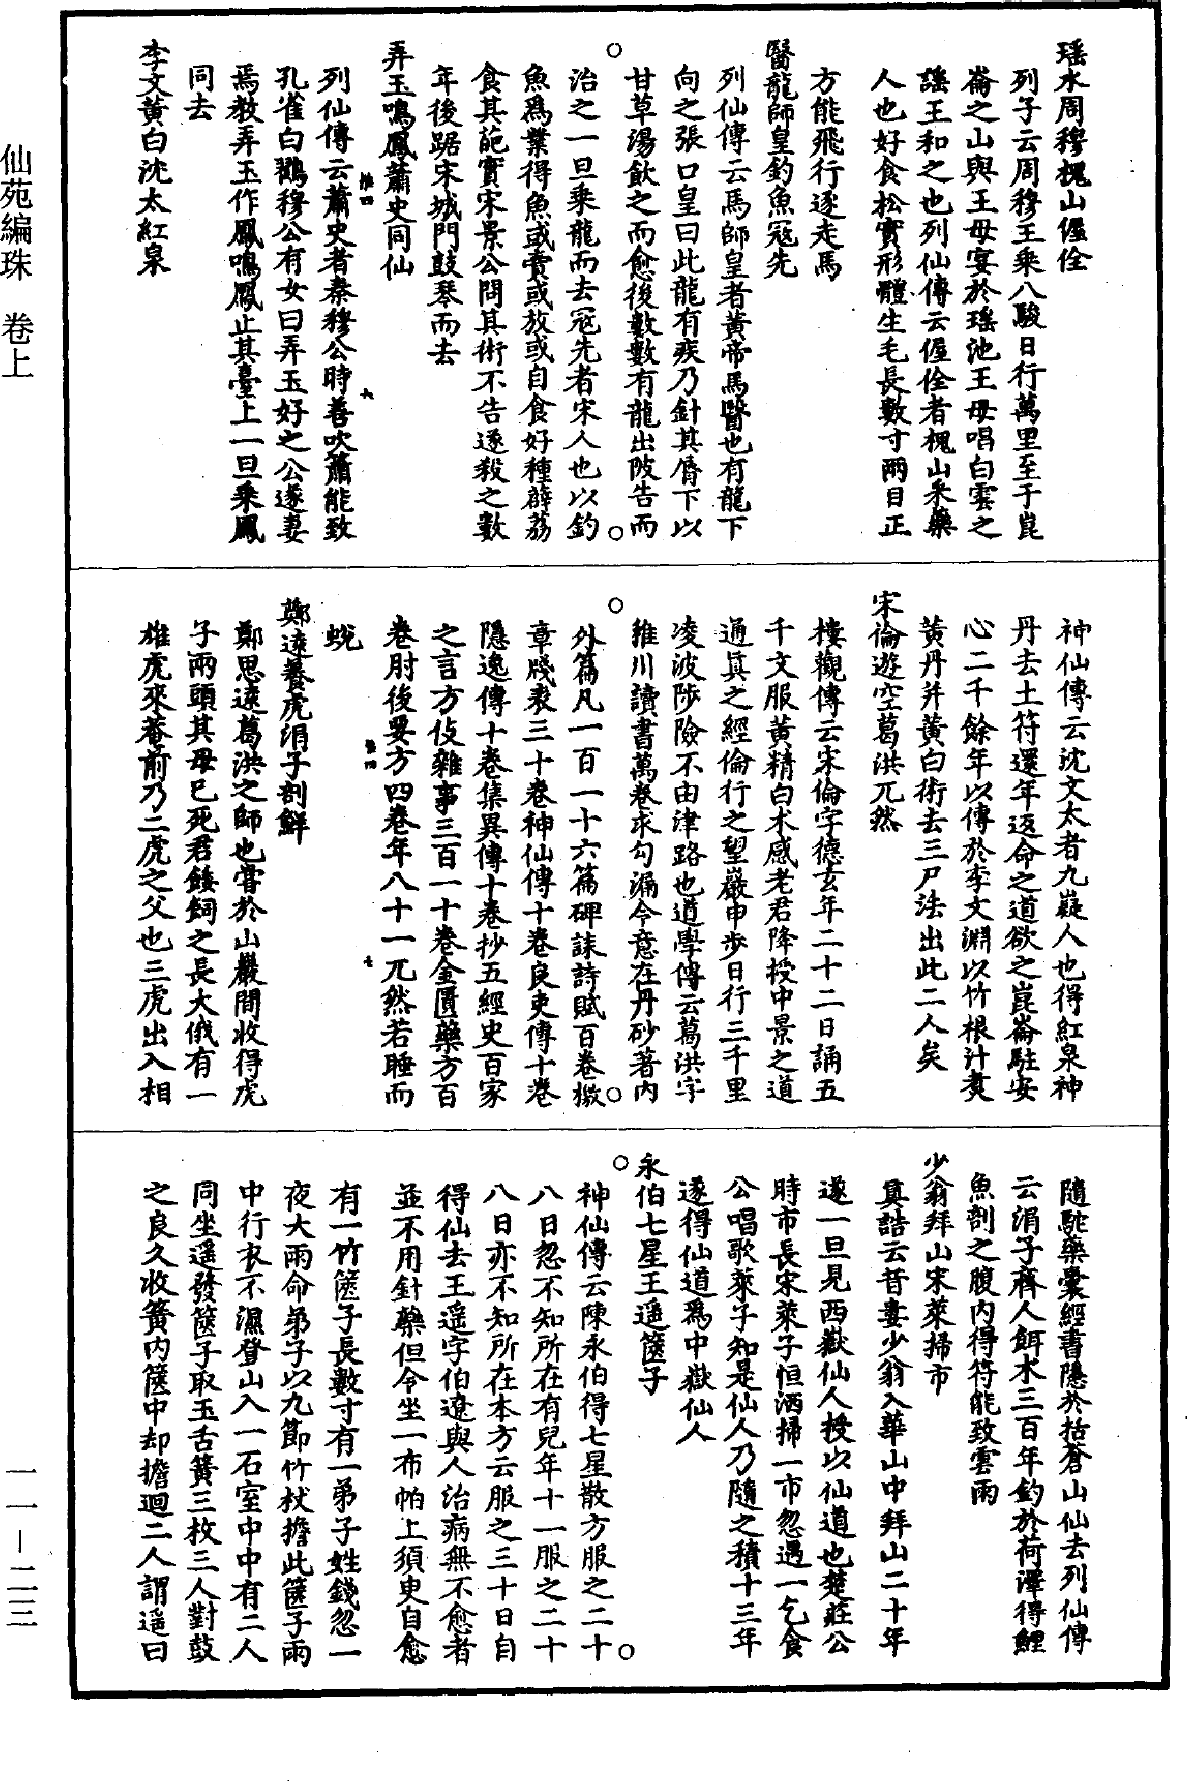 瑶水周穆槐山偓佺
列子云周穆王乘八駿日行萬里至于崑
崙之山與王母宴於瑶池王母唱白雲之
謡王和之也列仙傳云偓佺者槐山釆藥
人也好食松實形體生毛長數寸兩目正
方能飛行逐走馬
醫龍師皇釣魚冦先
列仙傳云馬師皇者黄帝馬醫也有龍下
向之張口皇曰此龍有疾乃針其脣下以
甘草湯飲之而愈後數數有龍出陂告而
治之一旦乘龍而去冦先者宋人也以釣
魚爲業得魚或賣或放或自食好種薜荔
食其葩實宋景公問其術不告遂殺之數
年後踞宋城門鼓琴而去
弄玉鳴鳳蕭史同仙
列仙傳云蕭史者秦穆公時善吹簫能致
孔雀白鸛穆公有女曰弄玉好之公遂妻
焉教弄玉作鳳鳴鳳止其臺上一旦乘鳳
同去
李文黄白沈太紅泉
神仙傳云沈文太者九嶷人也得紅泉神
丹去土符還年返命之道欲之崑崙駐安
心二千餘年以傳於李文淵以竹根汁煑
黄丹并黄白術去三尸法出此二人矣
宋倫遊空葛洪兀然
樓觀傳云宋倫字德玄年二十二日誦五
千文服黄精白术感老君降授中景之道
通眞之經倫行之望巖申步日行三千里
凌波陟險不由津路也道學傳云葛洪字
稚川讀書萬卷求勾漏令意在丹砂著内
外篇凡一百一十六篇碑誄詩賦百卷檄
章牋表三十卷神仙傳十卷良吏傳十卷
隱逸傳十卷集異傳十卷抄五經史百家
之言方伎雜事三百一十卷金匱藥方百
卷肘後要方四卷年八十一兀然若睡而
蛻
鄭遠養虎涓子剖鮮
鄭思遠葛洪之師也嘗於山巖間收得虎
子兩頭其母已死君餧飼之長大俄有一
雄虎來菴前乃二虎之父也三虎出入相
隨駞藥囊經書隱於括蒼山仙去列仙傳
云涓子齊人餌水三百年釣於荷澤得鯉
魚剖之腹内得符能致雲雨
少翁拜山宋萊掃市
眞誥云昔婁少翁入華山中拜山二十年
遂一旦見西嶽仙人授以仙道也楚莊公
時市長宋萊子恒洒掃一市忽遇一乞食
公唱歌萊子知是仙人乃隨之積十三年
遂得仙道爲中嶽仙人
永伯七星王遥篋子
神仙傳云陳永伯得七星散方服之二十
八日忽不知所在有兒年十一服之二十
八日亦不知所在本方云服之三十日自
得仙去王遥字伯遼與人治病無不愈者
並不用針藥但令坐一布帕上須臾自愈
有一竹篋子長數寸有一弟子姓錢忽一
夜大雨命弟子以九節竹杖擔此篋子雨
中行衣不濕登山入一石室中中有二人
同坐遥發篋子取玉舌簧三枚三人對鼓
之良久收簧内篋中却擔迴二人謂遥曰
仙苑編珠　卷上
一一—二三